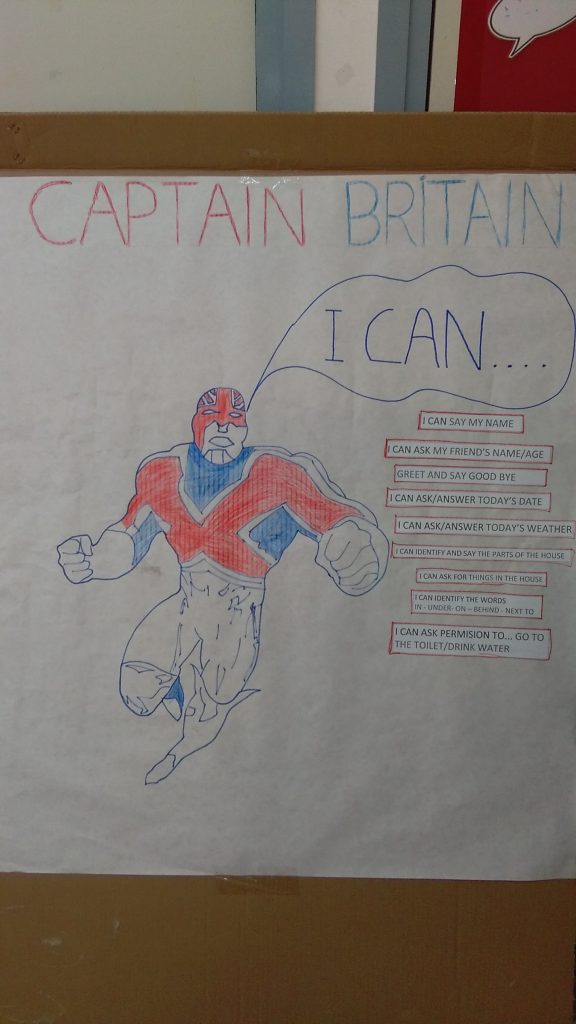 CAPTAIN BRITAIN
I CAN....
I CAN SAY MY NAME
I CAN ASK MY FRIEND'S NAME/AGE
GREET AND SAY GOOD BYE
I CAN ASK/ANSWER TODAY'S DATE
I CAN ASK/ANSWER TODAY'S WEATHER
I CAN IDENTIFY AND SAY THE PARTS OF THE HOUSE
I CAN ASK FOR THINGS IN THE HOUSE
I CAN IDENTIFY THE WORDS
IN - UNDER- ON – BEHIND - NEXT TO
I CAN ASK PERMISION TO... GO TO
THE TOILET/DRINK WATER